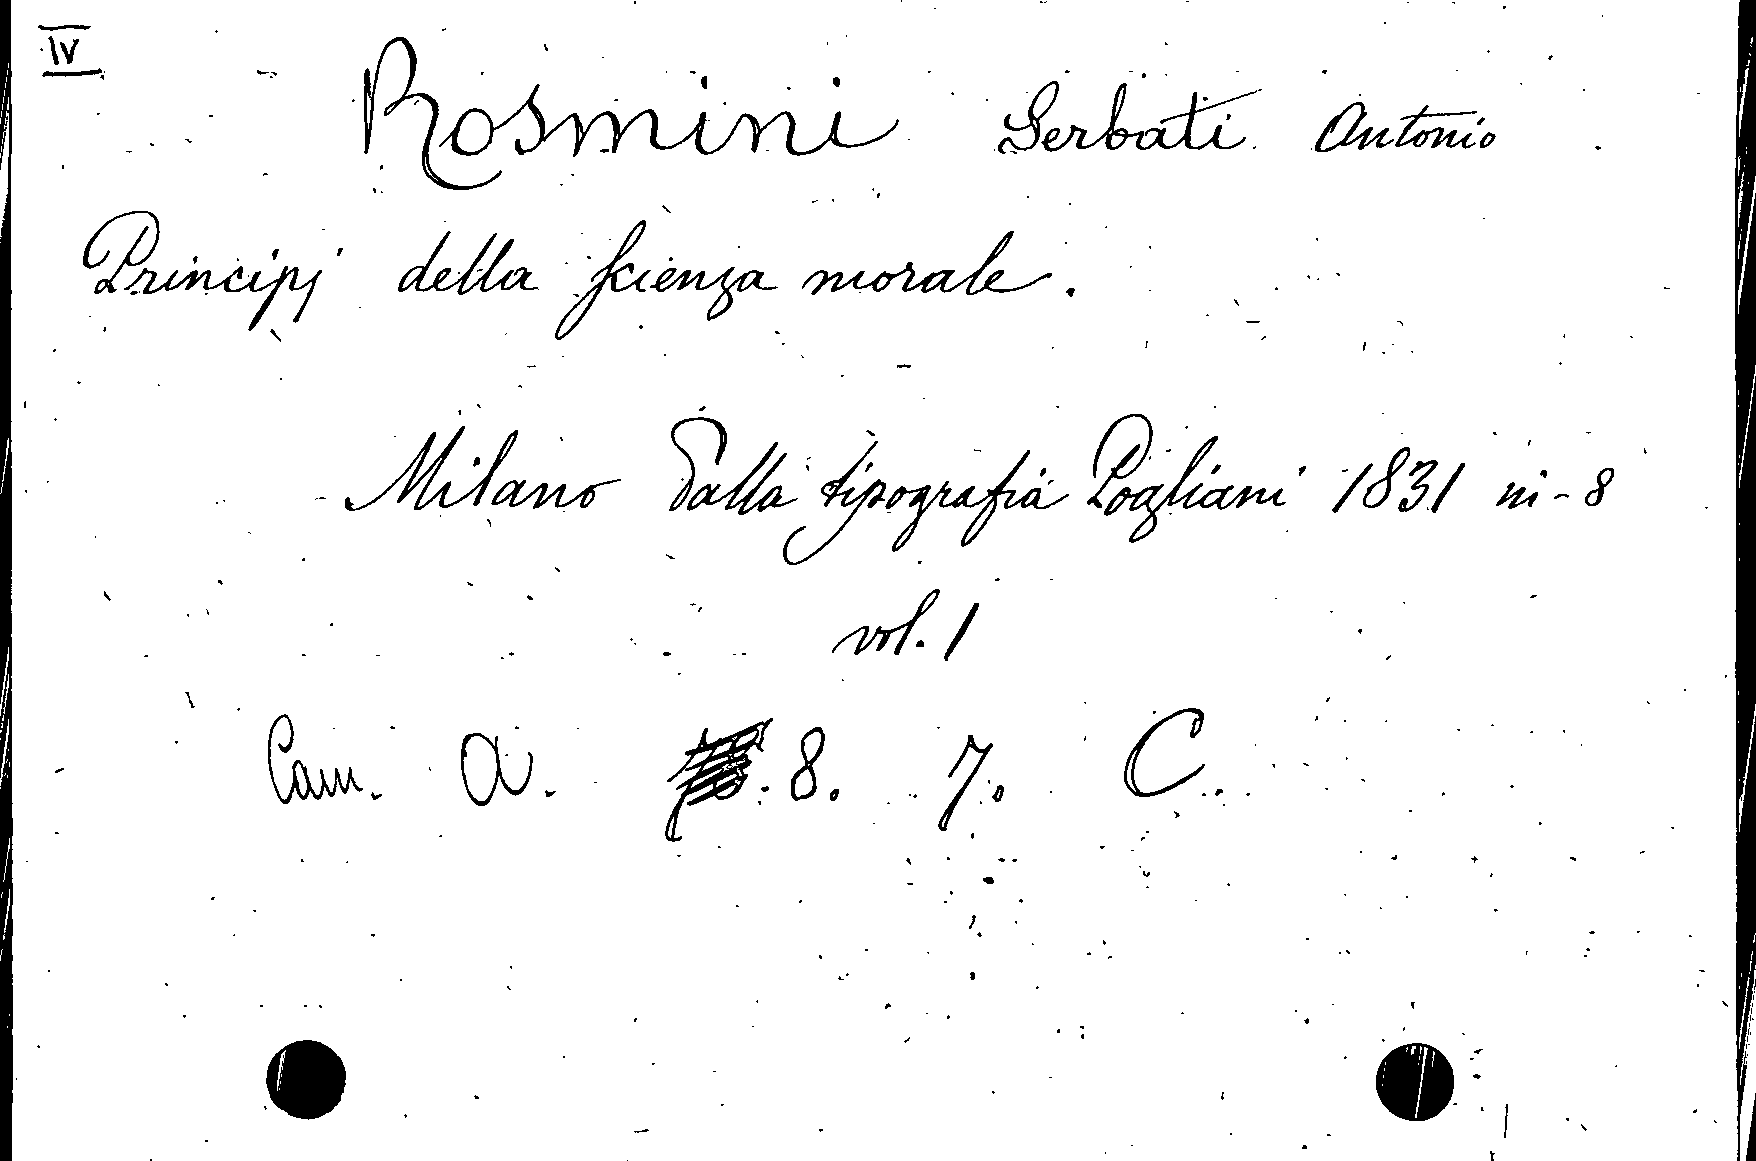 IV
Rosmini Serbati Antonio
Principj della scienza morale.
Milano Dalla tipografia Pogliani 1831 in-8
vol. 1
Cam. A. 8. 7. C.